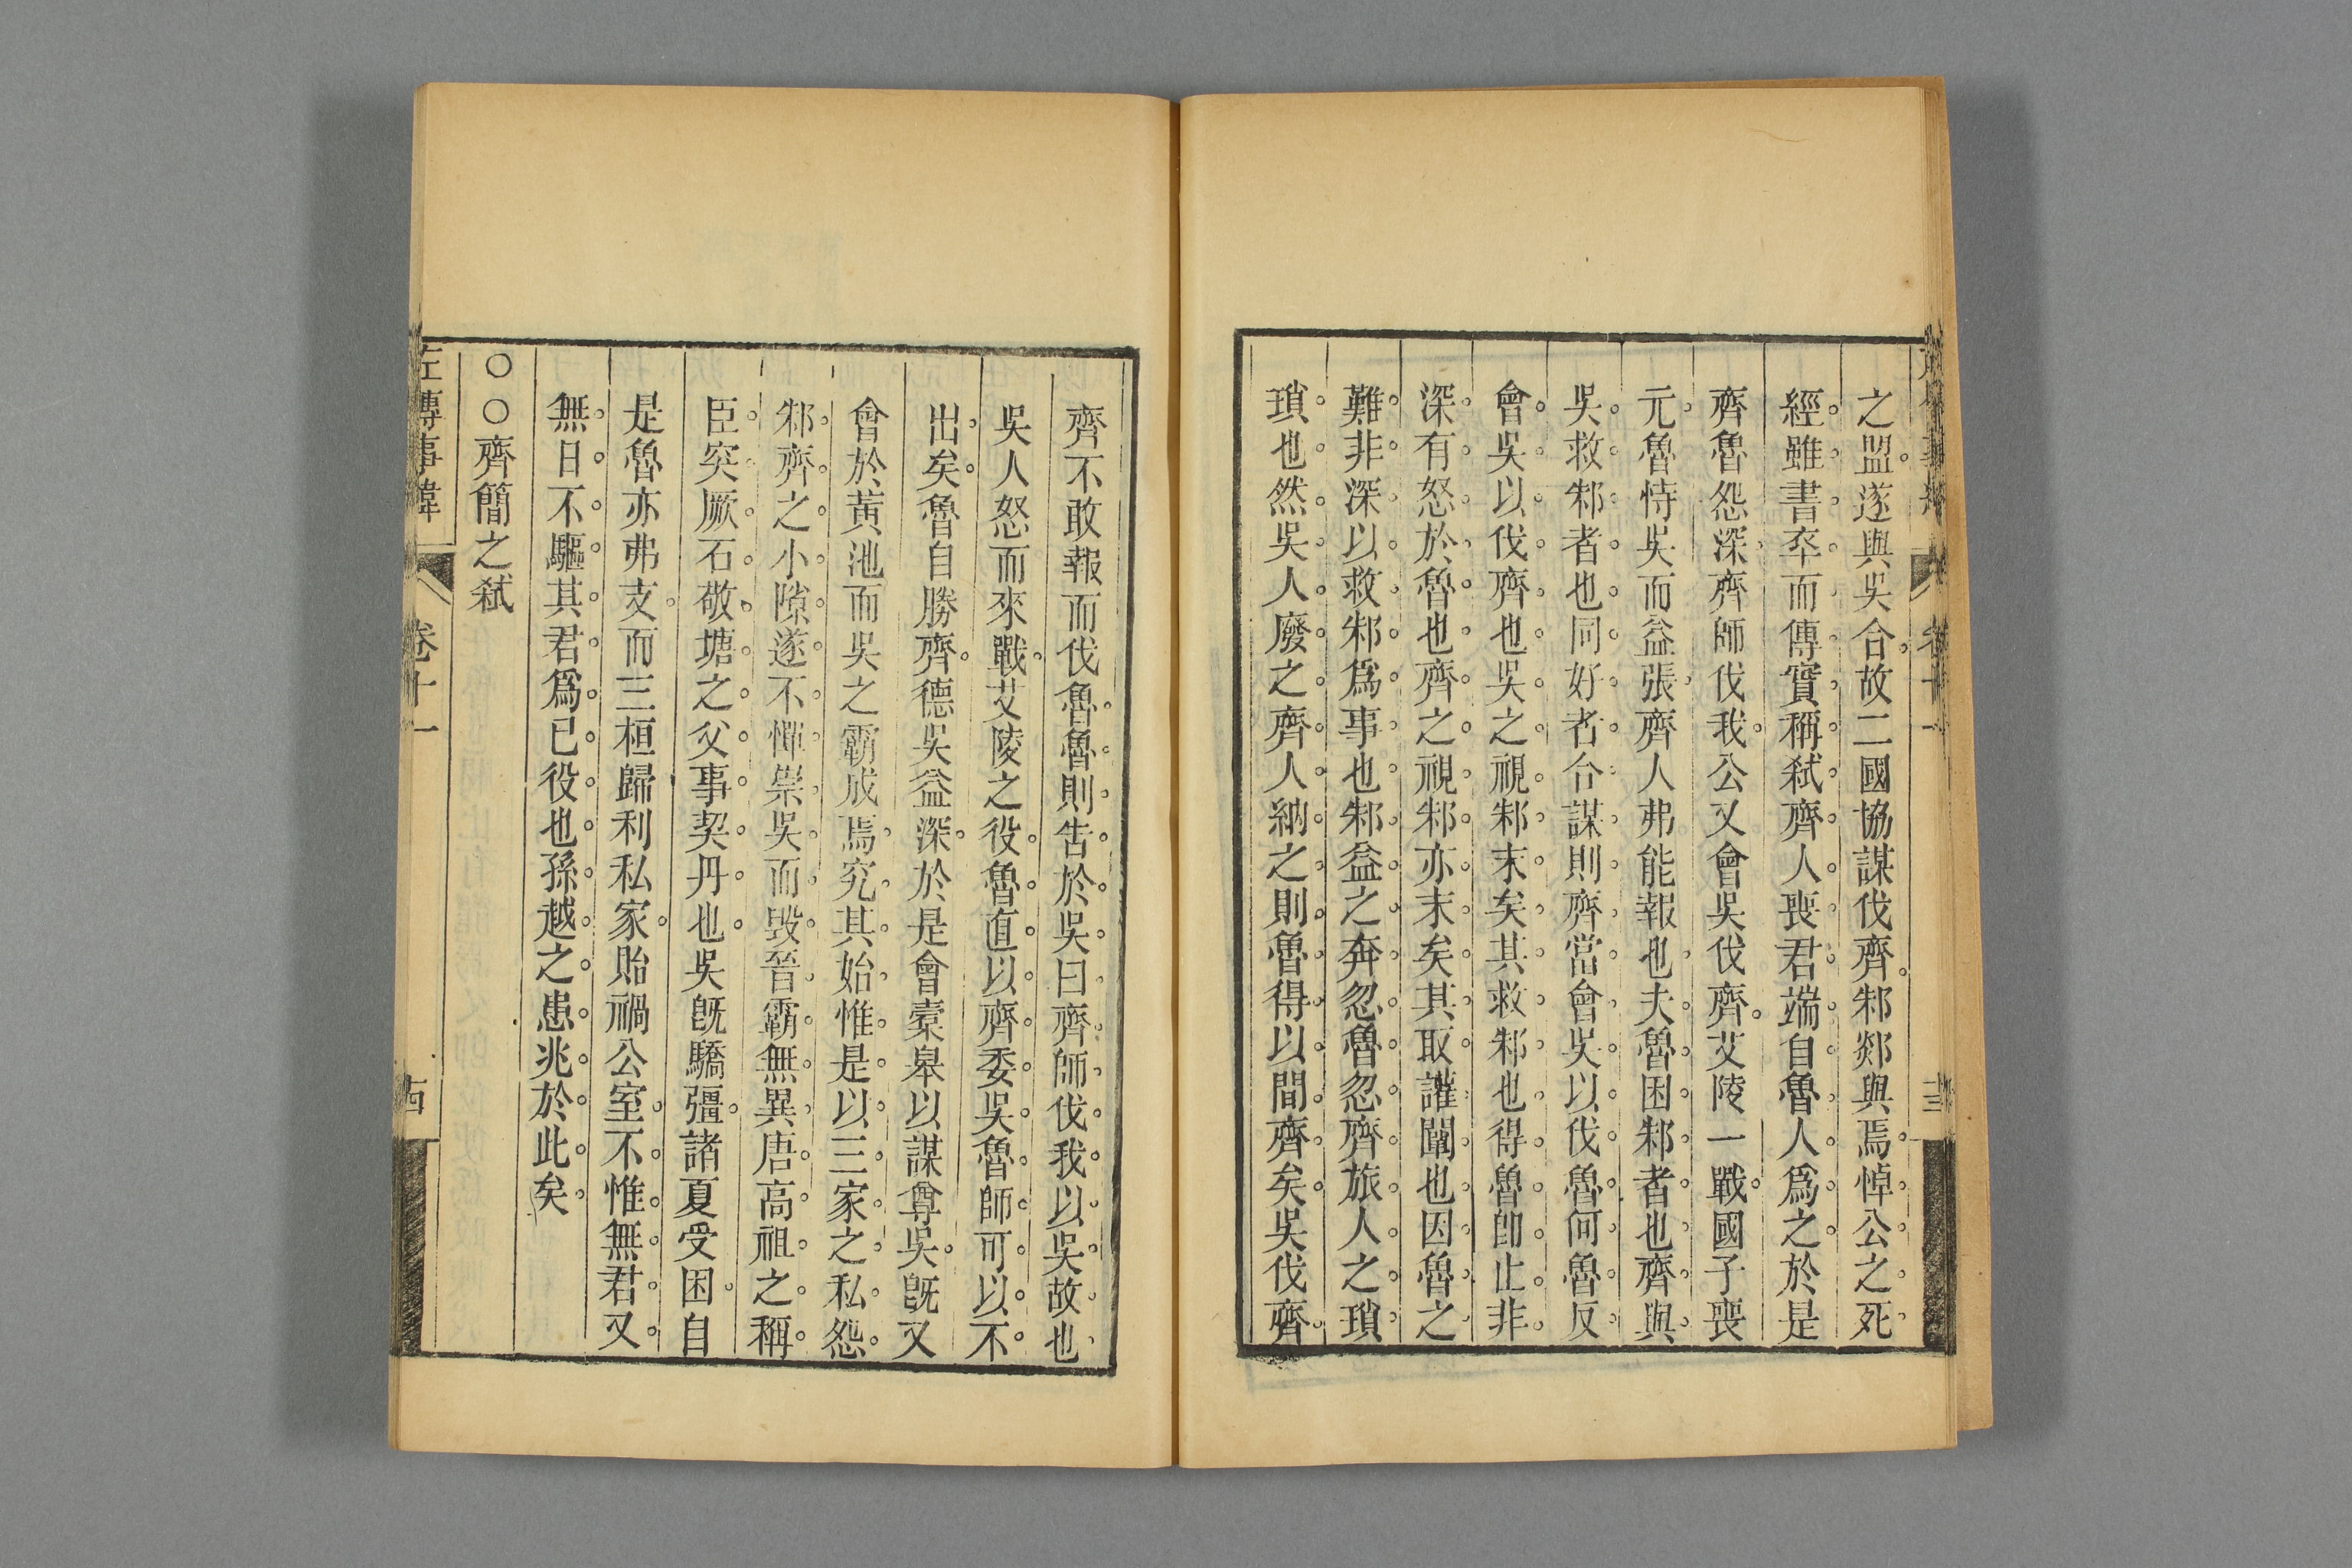 之盟遂與吳合故二國協謀伐齊邾郯與焉悼公之死
經雖書卒而傳實稱弒齊人喪君端自魯人爲之於是
齊魯怨深齊師伐我公又會吳伐齊艾陵一戰國子喪
元魯恃吳而益張齊人弗能報也夫魯困邾者也齊與
吳救邾者也同好者合謀則齊當會吳以伐魯何魯反
會吳以伐齊也吳之視邾末矣其救邾也得魯卽止非
深有怒於魯也齊之視邾亦末矣其取讙闡也因魯之
難非深以救邾爲事也邾益之奔忽魯忽齊旅人之瑣
瑣也然吳人廢之齊人納之則魯得以間齊矣吳伐齊
齊不敢報而伐魯魯則告於吳曰齊師伐我以吳故也
吳人怒而來戰艾陵之役魯直以齊委吳魯師可以不
出矣魯自勝齊德吳益深於是會槖皋以謀尊吳旣又
會於黃池而吳之霸成焉究其始惟是以三家之私怨
邾齊之小隙遂不憚崇吳而毁晉霸無異唐高祖之稱
臣突厥石敬塘之父事契丹也吳旣驕彊諸夏受困自
是魯亦弗支而三桓歸利私家貽禍公室不惟無君又
無日不驅其君爲已役也孫越之患兆於此矣
○○齊簡之弒
左傳事緯 卷十一 十四